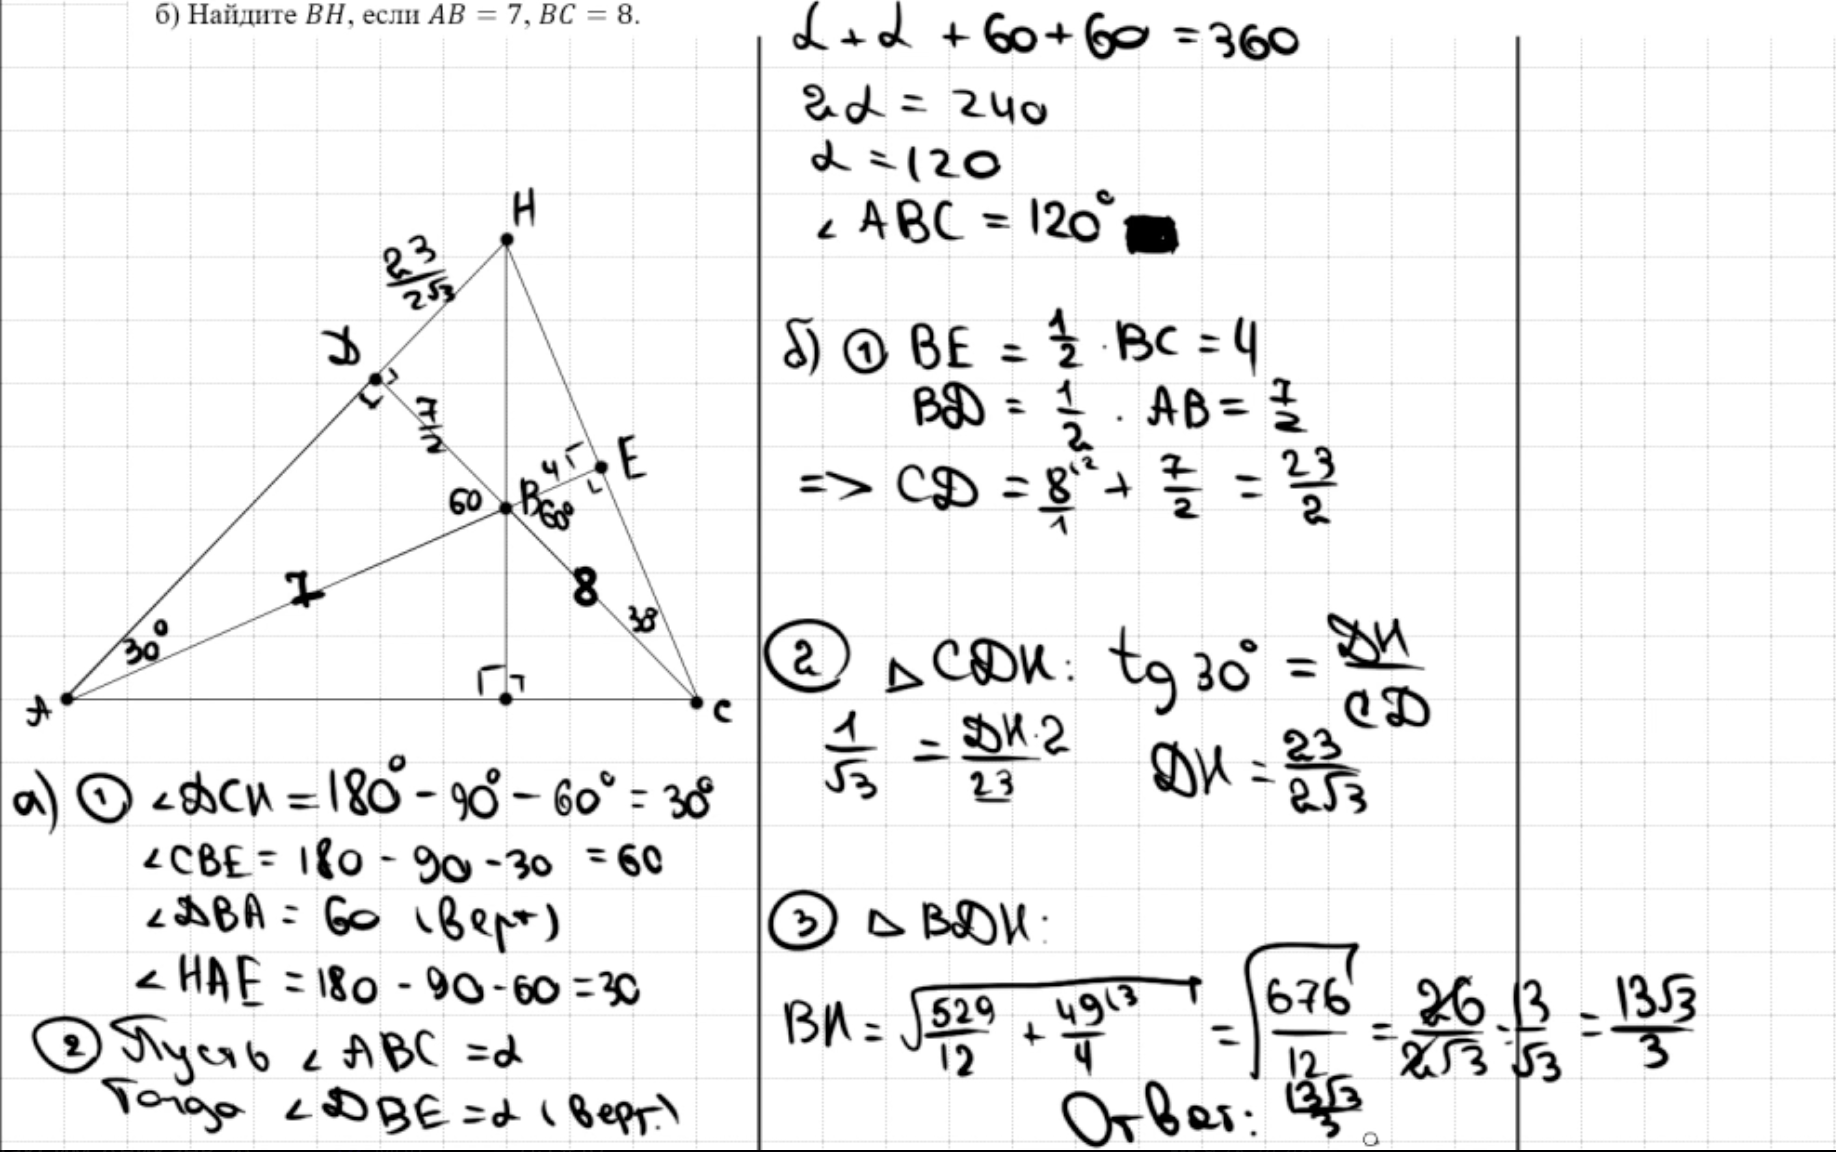 б) Найдите BH, если AB = 7, BC = 8.
H
23/2√3
D
7/2
E
4
60
B
60°
7
8
30°
30°
A
C
а) ① ∠DCH = 180° - 90° - 60° = 30°
∠CBE = 180 - 90 - 30 = 60
∠DBA = 60 (верт)
∠HAE = 180 - 90 - 60 = 30
② Пусть ∠ABC = α
Тогда ∠DBE = α (верт.)
α + α + 60 + 60 = 360
2α = 240
α = 120
∠ABC = 120°
б) ① BE = 1/2 · BC = 4
BD = 1/2 · AB = 7/2
=> CD = 8/1 (2 + 7/2 = 23/2
② △CDH: tg 30° = DH/CD
1/√3 = DH·2/23 DH = 23/2√3
③ △BDH:
BH = √529/12 + 49(3/4 = √676/12 = 26/2√3 = 13/√3 = 13√3/3
Ответ: 13√3/3